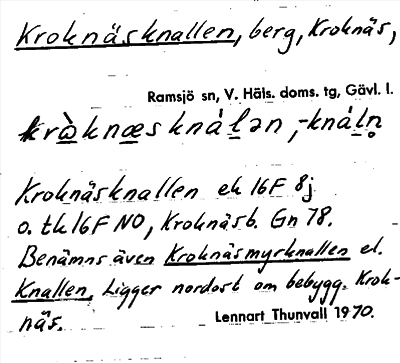 Kroknäsknallen, berg, Kroknäs,
Ramsjö sn, V. Häls. doms. tg, Gävl. l.
kràknæsknáḷən, -knáḷn̥
Kroknäsknallen ek 16F 8j
o. tk 16F NO, Kroknäsb. Gn 78.
Benämns även Kroknäsmyrknallen el.
Knallen. Ligger nordost om bebygg. Krok-
näs.
Lennart Thunvall 1970.